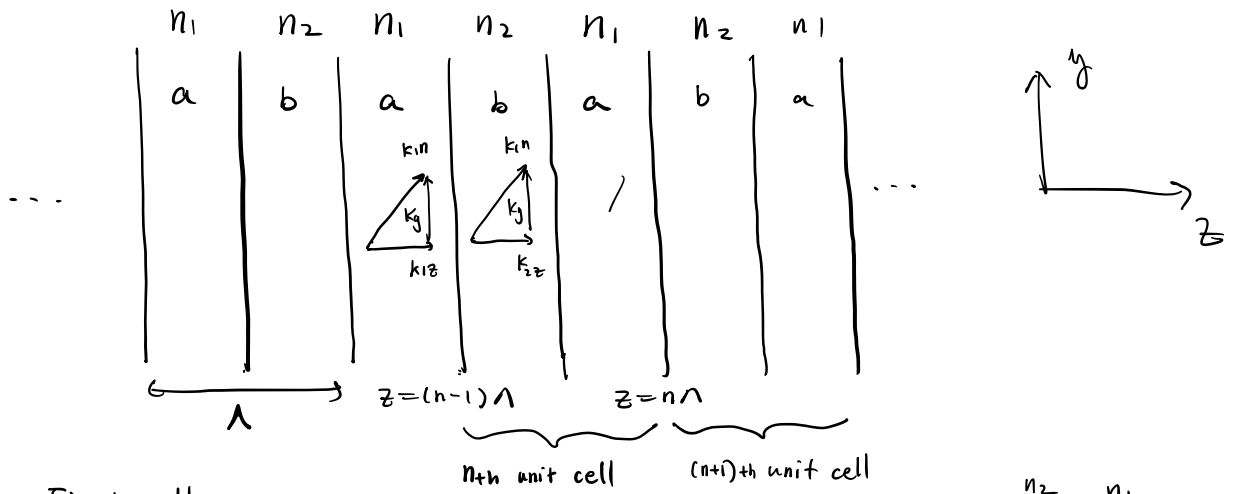 n1 n2 n1 n2 n1 n2 n1
a b a b a b a
y
k1n k1n
... ky ky ...
k1z k2z
z
z=(n-1)Λ z=nΛ
Λ
nth unit cell (n+1)th unit cell
n2 n1